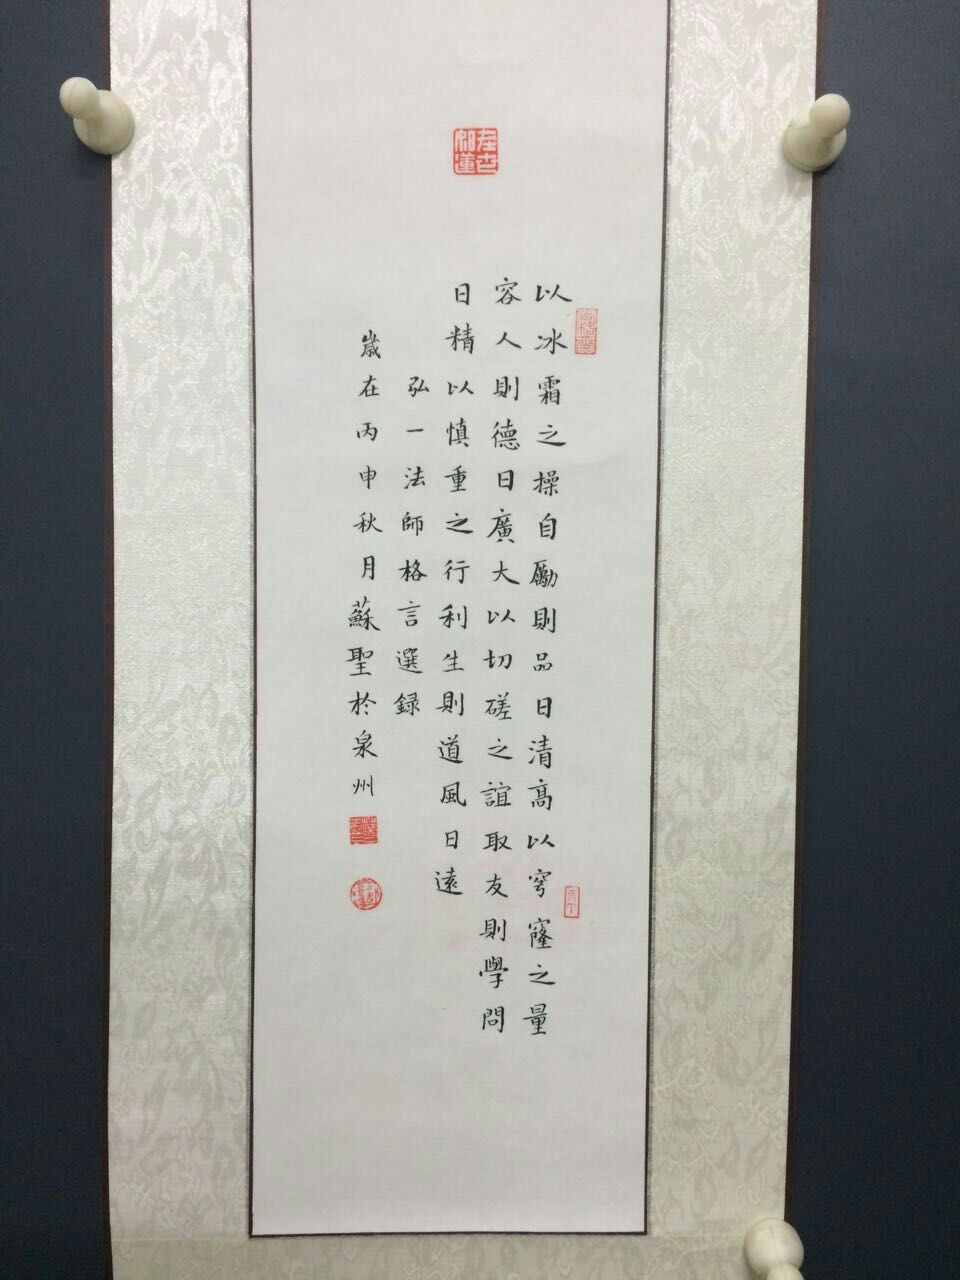 在世如蓮
以冰霜之操自勵則品日清高以穹窿之量
容人則德日廣大以切磋之誼取友則學問
日精以慎重之行利生則道風日遠
弘一法師格言選録
歲在丙申秋月蘇聖於泉州